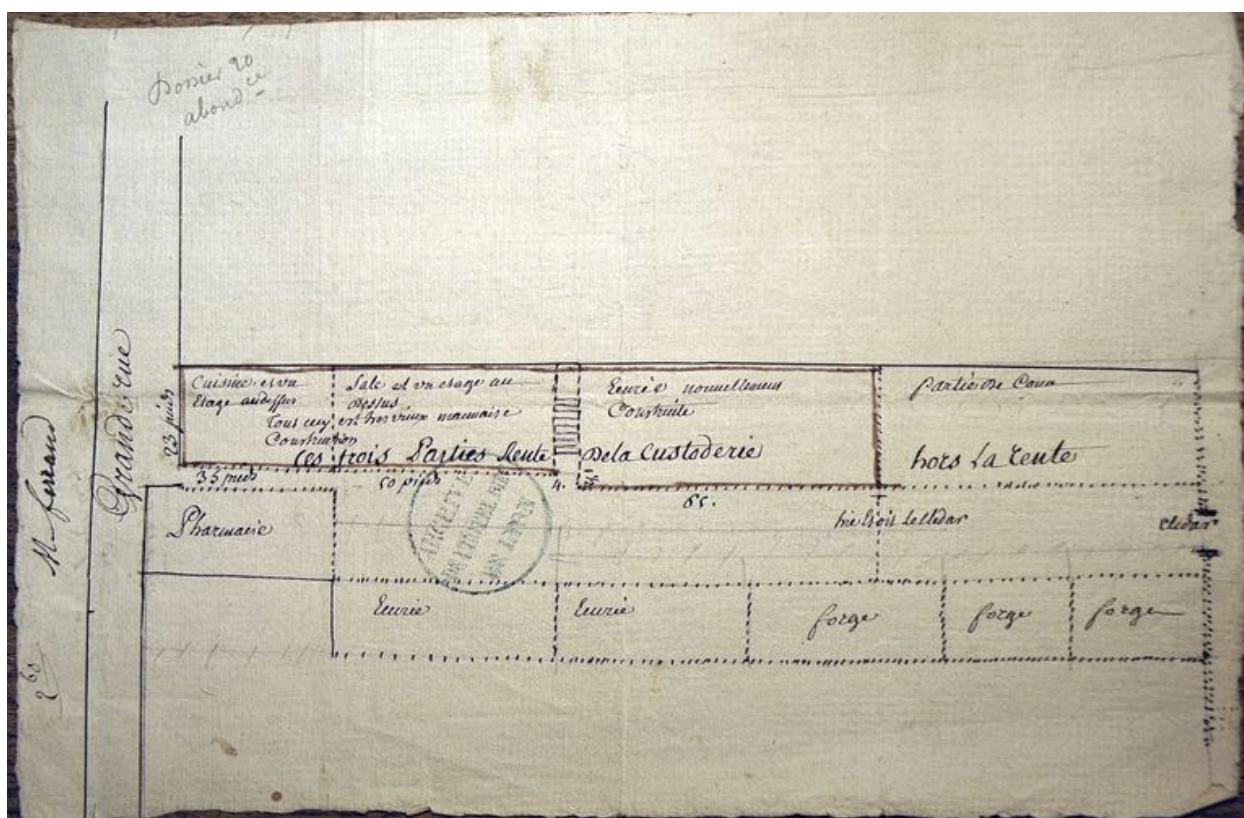 Dossier 20
abond ce
M. ferrand
Grande rue
23 pieds
Cuisine et un
Etage audessus
Sale et un etage au
dessus
Tous cecy est tres vieux mauvaise
Construction
Ecurie nouvellement
Construite
Partie De Cour
Ces trois Parties Rente Dela Custoderie
hors La rente
35 pieds
50 pieds
4.
65.
Pharmacie
cledar
Ecurie
Ecurie
forge
forge
forge